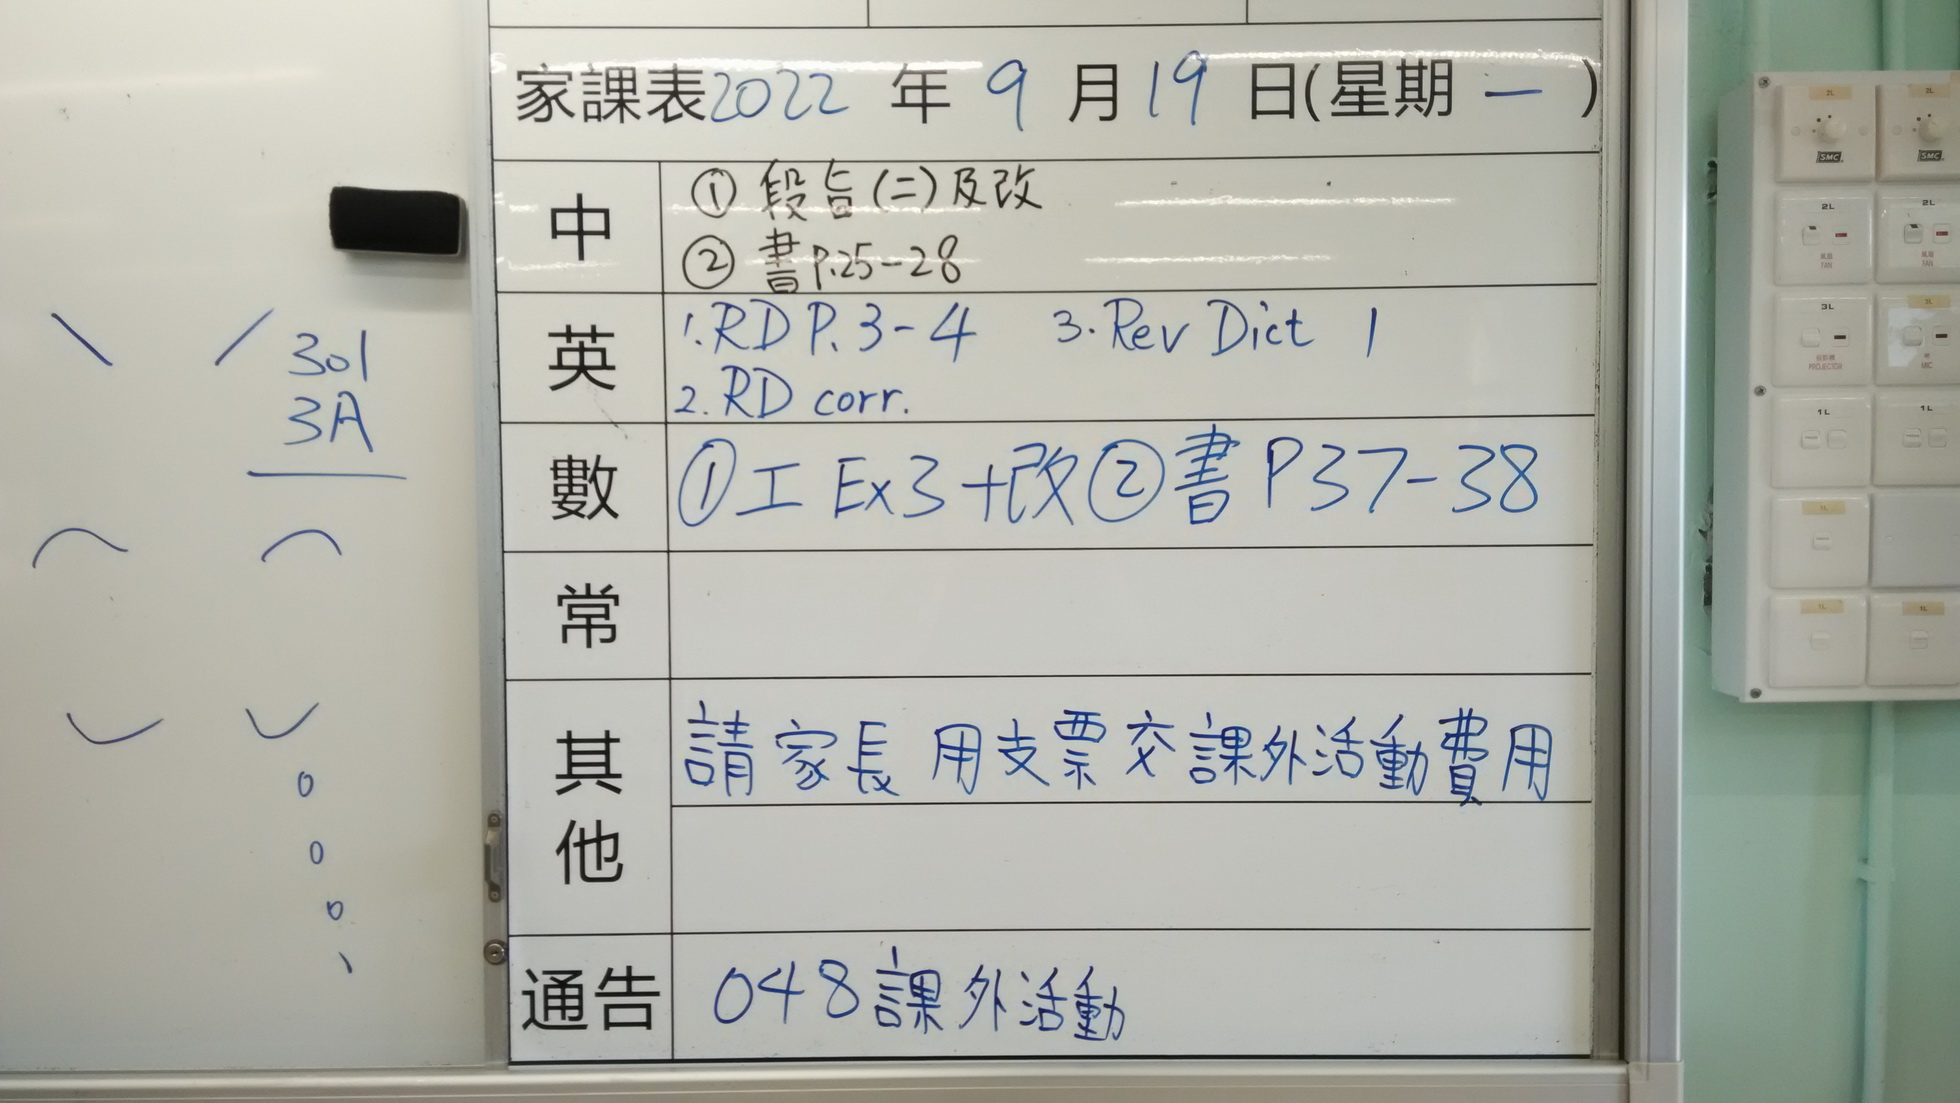 家課表2022 年 9 月 19 日(星期 一 )
中
① 段旨(二)及改
② 書P.25-28
301
3A
英
1.RD P.3-4 3.Rev Dict 1
2.RD corr.
數
①工 Ex3+改②書P37-38
常
其他
請家長用支票交課外活動費用
通告
048課外活動
2L
2L
SMC
SMC
2L
2L
風扇
FAN
風扇
FAN
3L
3L
PROJECTOR
MIC
1L
1L
1L
1L
1L